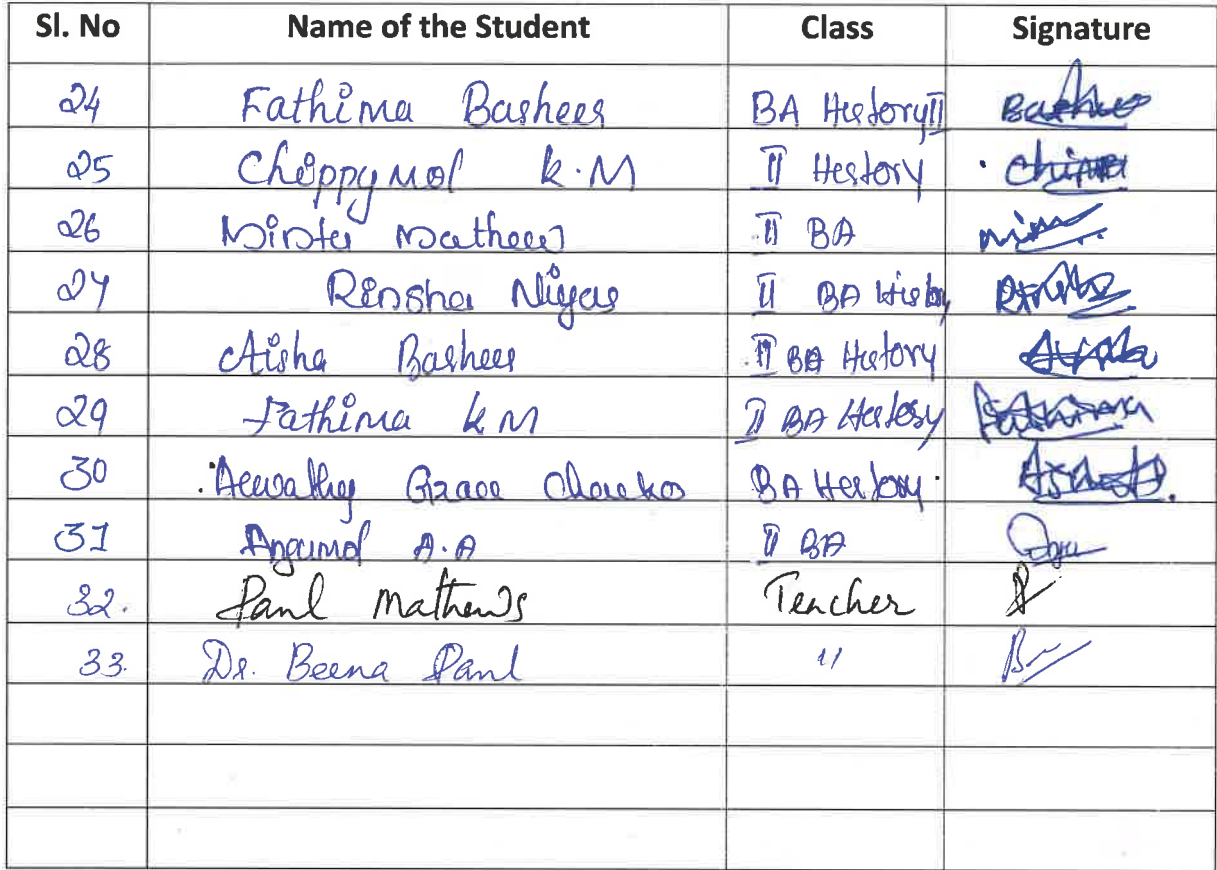 Sl. No Name of the Student Class Signature
24 Fathima Basheer BA History II
25 Chippymol K.M II History
26 Mathew II BA
27 Rinsha Niyas II BA History
28 Aisha Basheer II BA History
29 Fathima K M II BA History Fathima
30 Grace Chacko BA History
31 Angumol A.A II BA
32. Paul Mathews Teacher
33. Dr. Beena Paul "